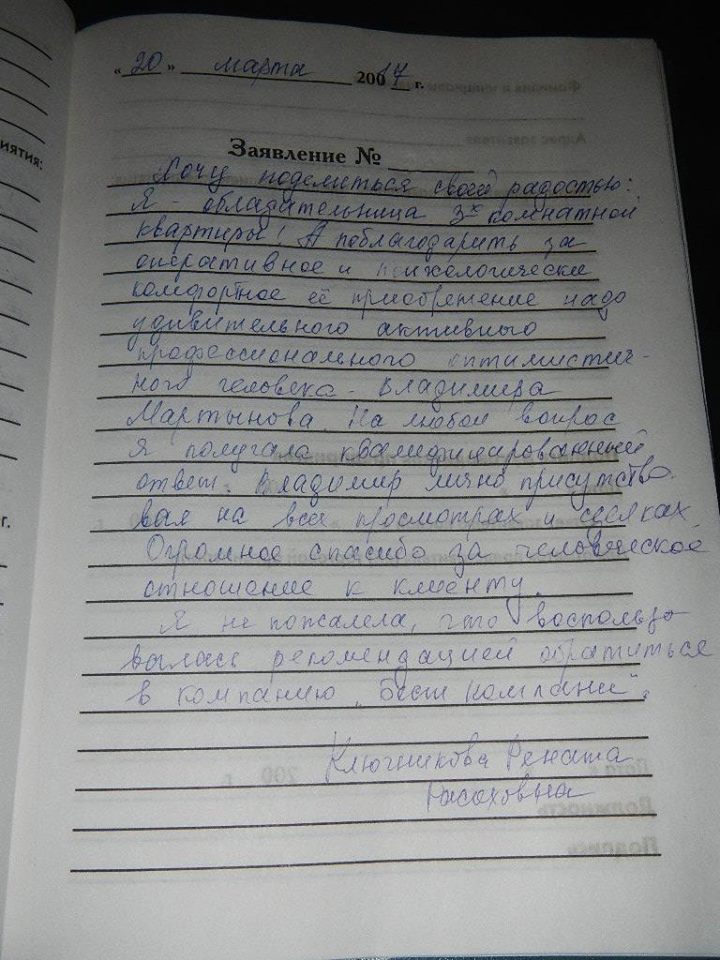 иятия:
г.
"20" марта 20017 г.
Фамилия и инициалы
Адрес заявителя
Заявление №
Хочу поделиться своей радостью:
Я - обладательница 3х комнатной
квартиры! А поблагодарить за
оперативное и психологически
комфортное её приобретение надо
удивительного активного
профессионального оптимистич-
ного человека - Владимира
Мартынова. На любой вопрос
я получала квалифицированный
ответ. Владимир лично присутство
вал на всех просмотрах и сделках.
Огромное спасибо за человеческое
отношение к клиенту.
Я не пожалела, что воспользо
валась рекомендацией обратиться
в компанию „Бест компани".
Ключникова Рената
200 г.
Должность
Подпись